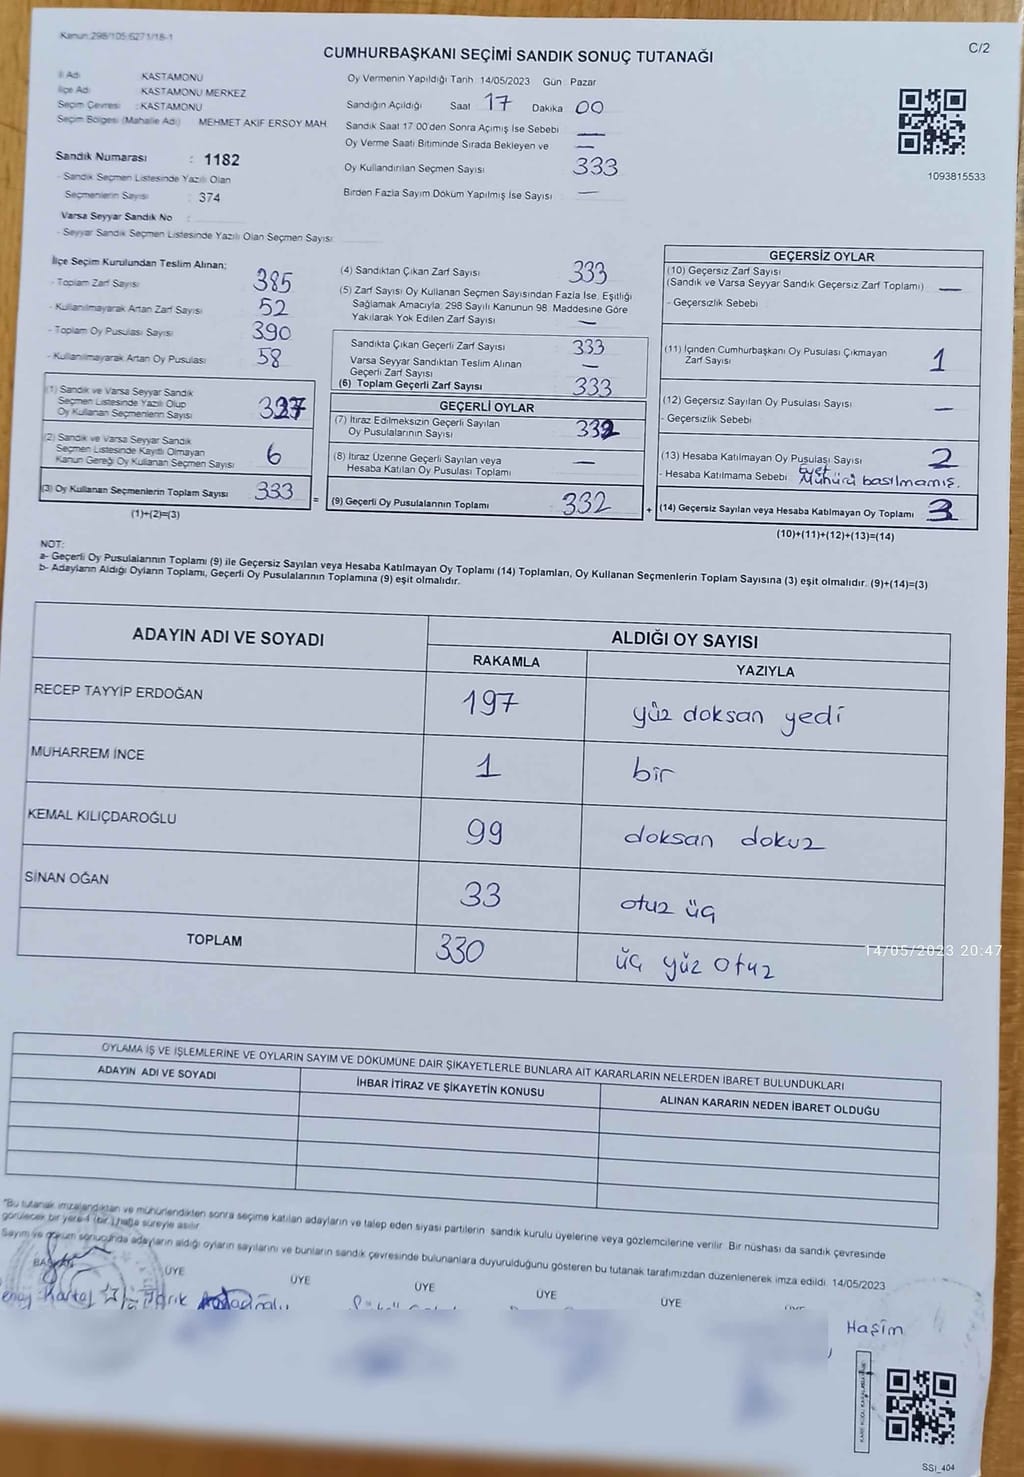 Kanun:298/105:6271/18-1
C/2
CUMHURBAŞKANI SEÇİMİ SANDIK SONUÇ TUTANAĞI
İl Adı KASTAMONU
İlçe Adı KASTAMONU MERKEZ
Seçim Çevresi : KASTAMONU
Seçim Bölgesi (Mahalle Adı) MEHMET AKİF ERSOY MAH.
Oy Vermenin Yapıldığı Tarih 14/05/2023 Gün Pazar
Sandığın Açıldığı Saat 17 Dakika 00
Sandık Saat 17:00'den Sonra Açımış İse Sebebi —
Oy Verme Saati Bitiminde Sırada Bekleyen ve —
Oy Kullandırılan Seçmen Sayısı 333
Birden Fazla Sayım Döküm Yapılmış İse Sayısı —
1093815533
Sandık Numarası : 1182
- Sandık Seçmen Listesinde Yazılı Olan
Seçmenlerin Sayısı : 374
Varsa Seyyar Sandık No :
- Seyyar Sandık Seçmen Listesinde Yazılı Olan Seçmen Sayısı:
İlçe Seçim Kurulundan Teslim Alınan;
- Toplam Zarf Sayısı 385
- Kullanılmayarak Artan Zarf Sayısı 52
- Toplam Oy Pusulası Sayısı 390
- Kullanılmayarak Artan Oy Pusulası 58
(1) Sandık ve Varsa Seyyar Sandık
Seçmen Listesinde Yazılı Olup
Oy Kullanan Seçmenlerin Sayısı 327
(2) Sandık ve Varsa Seyyar Sandık
Seçmen Listesinde Kayıtlı Olmayan
Kanun Gereği Oy Kullanan Seçmen Sayısı 6
(3) Oy Kullanan Seçmenlerin Toplam Sayısı 333
(1)+(2)=(3)
(4) Sandıktan Çıkan Zarf Sayısı 333
(5) Zarf Sayısı Oy Kullanan Seçmen Sayısından Fazla İse, Eşitliği
Sağlamak Amacıyla, 298 Sayılı Kanunun 98. Maddesine Göre
Yakılarak Yok Edilen Zarf Sayısı —
Sandıkta Çıkan Geçerli Zarf Sayısı 333
Varsa Seyyar Sandıktan Teslim Alınan
Geçerli Zarf Sayısı —
(6) Toplam Geçerli Zarf Sayısı 333
GEÇERLİ OYLAR
(7) İtiraz Edilmeksizin Geçerli Sayılan
Oy Pusulalarının Sayısı 332
(8) İtiraz Üzerine Geçerli Sayılan veya
Hesaba Katılan Oy Pusulası Toplamı —
= (9) Geçerli Oy Pusulalarının Toplamı 332
GEÇERSİZ OYLAR
(10) Geçersiz Zarf Sayısı
(Sandık ve Varsa Seyyar Sandık Geçersiz Zarf Toplamı) —
- Geçersizlik Sebebi
(11) İçinden Cumhurbaşkanı Oy Pusulası Çıkmayan
Zarf Sayısı 1
(12) Geçersiz Sayılan Oy Pusulası Sayısı —
- Geçersizlik Sebebi
(13) Hesaba Katılmayan Oy Pusulası Sayısı 2
- Hesaba Katılmama Sebebi Evet Mührü basılmamış.
+ (14) Geçersiz Sayılan veya Hesaba Katılmayan Oy Toplamı 3
(10)+(11)+(12)+(13)=(14)
NOT:
a- Geçerli Oy Pusulalarının Toplamı (9) ile Geçersiz Sayılan veya Hesaba Katılmayan Oy Toplamı (14) Toplamları, Oy Kullanan Seçmenlerin Toplam Sayısına (3) eşit olmalıdır. (9)+(14)=(3)
b- Adayların Aldığı Oyların Toplamı, Geçerli Oy Pusulalarının Toplamına (9) eşit olmalıdır.
ADAYIN ADI VE SOYADI
ALDIĞI OY SAYISI
RAKAMLA YAZIYLA
RECEP TAYYİP ERDOĞAN 197 yüz doksan yedi
MUHARREM İNCE 1 bir
KEMAL KILIÇDAROĞLU 99 doksan dokuz
SİNAN OĞAN 33 otuz üç
TOPLAM 330 üç yüz otuz
14/05/2023 20:47
OYLAMA İŞ VE İŞLEMLERİNE VE OYLARIN SAYIM VE DÖKÜMÜNE DAİR ŞİKAYETLERLE BUNLARA AİT KARARLARIN NELERDEN İBARET BULUNDUKLARI
ADAYIN ADI VE SOYADI
İHBAR İTİRAZ VE ŞİKAYETİN KONUSU
ALINAN KARARIN NEDEN İBARET OLDUĞU
"Bu tutanak imzalandıktan ve mühürlendikten sonra seçime katılan adayların ve talep eden siyasi partilerin sandık kurulu üyelerine veya gözlemcilerine verilir. Bir nüshası da sandık çevresinde
görülecek bir yere 1 (bir) hafta süreyle asılır.
Sayım ve döküm sonucunda adayların aldığı oyların sayılarını ve bunların sandık çevresinde bulunanlara duyurulduğunu gösteren bu tutanak tarafımızdan düzenlenerek imza edildi. 14/05/2023
BAŞKAN ÜYE ÜYE ÜYE ÜYE ÜYE
Kartal Tarık
Haşim
SSI_404